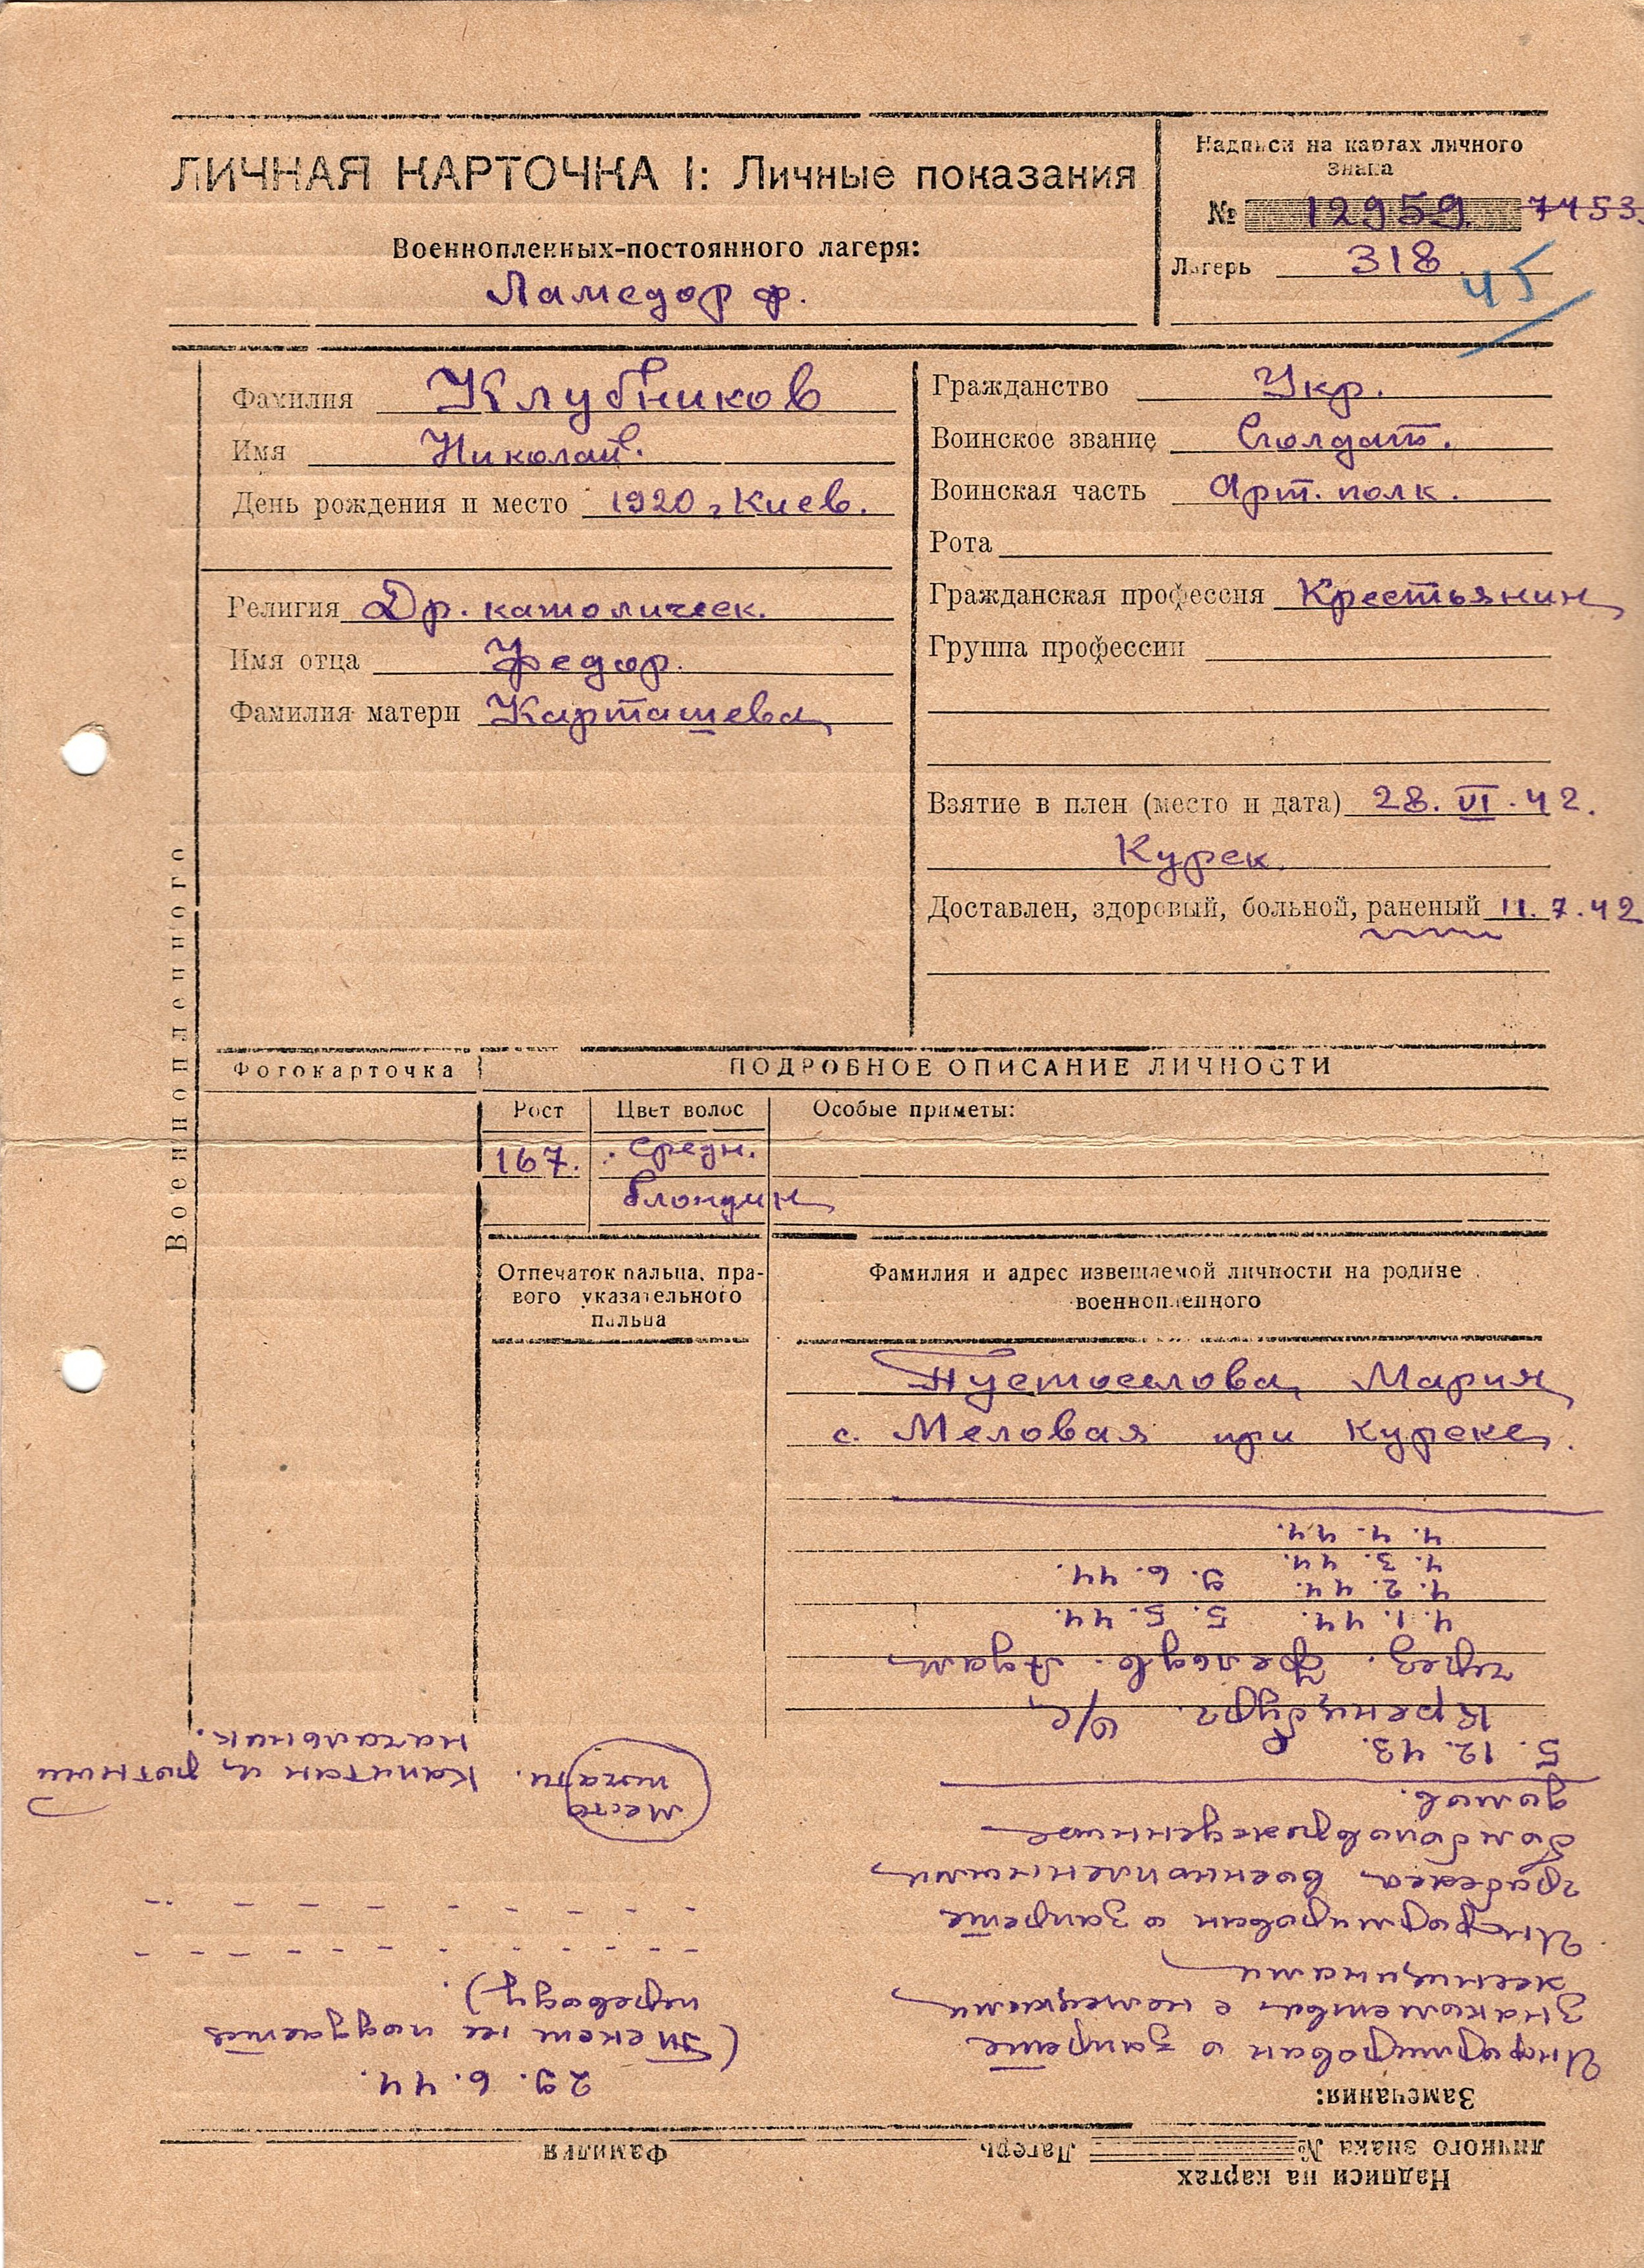 ЛИЧНАЯ КАРТОЧКА I: Личные показания
Военнопленных-постоянного лагеря:
Ламсдорф.
Надписи на картах личного
знака
№ 12959. 7453.
Лагерь 318.
45
Фамилия Клубников
Имя Николай.
День рождения и место 1920 г Киев.
Религия Др. католическ.
Имя отца Федор.
Фамилия матери Карташева
Гражданство Укр.
Воинское звание Солдат.
Воинская часть Арт. полк.
Рота
Гражданская профессия Крестьянин
Группа профессии
Взятие в плен (место и дата) 28. VI. 42.
Курск
Доставлен, здоровый, больной, раненый 11. 7. 42
Военнопленного
Фотокарточка
ПОДРОБНОЕ ОПИСАНИЕ ЛИЧНОСТИ
Рост
Цвет волос
Особые приметы:
167.
средн.
блондин
Отпечаток пальца, пра-
вого указательного
пальца
Фамилия и адрес извещаемой личности на родине
военнопленного
Мария
с. Меловая при Курске.
Надписи на картах
личного знака № Лагерь Фамилия
Замечания:
Информирован о запрете
знакомства с немецкими
женщинами
Информирован о запрете
грабежа военнопленными
бомбоповрежденные
домов.
5. 12. 43.
Кренцбург. в/с
через. Фельдв. Адам
4. 1. 44. 5. 5. 44.
4. 2. 44. 9. 6. 44.
4. 3. 44.
4. 4. 44.
29. 6. 44.
(Текст не поддается
переводу).
Место
печати. Капитан и ротный
начальник.